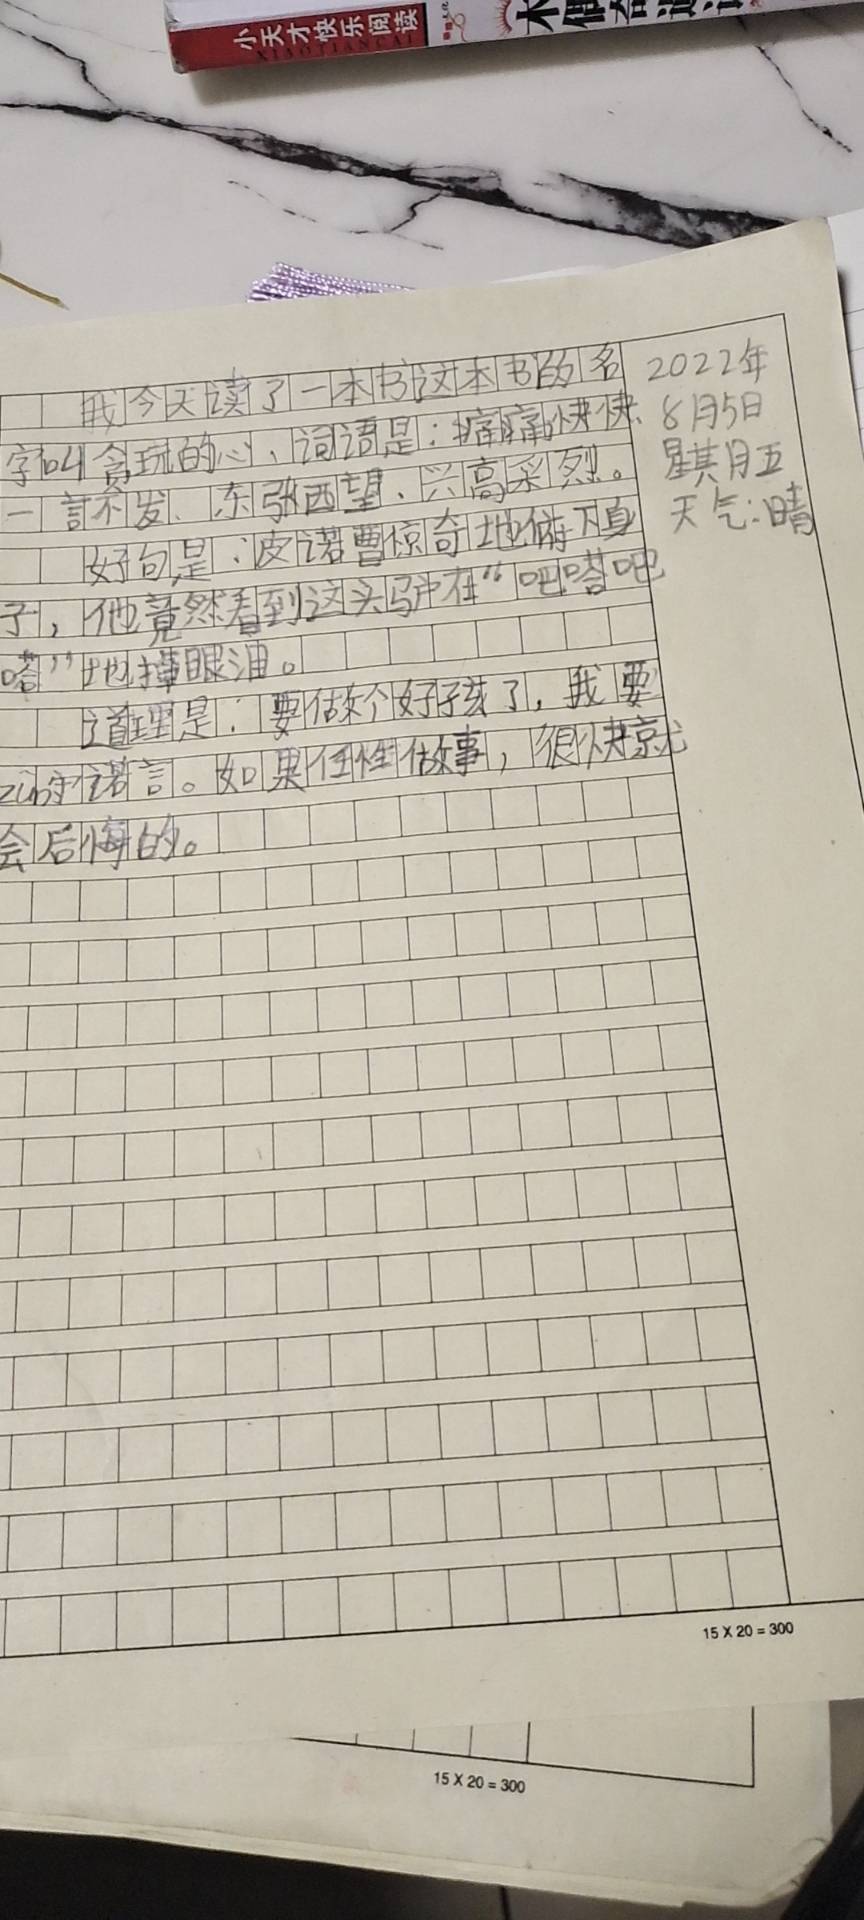 小天才快乐阅读
XIAOTIANCAI
我今天读了一本书这本书的名
字叫贪玩的心、词语是：痛痛快快、
一言不发、东张西望、兴高采烈。
好句是：皮诺曹惊奇地俯下身
子，他竟然看到这头驴在“吧嗒吧
嗒”地掉眼泪。
道理是：要做个好孩了，我要
zūn守诺言。如果任性做事，很快就
会后悔的。
2022年
8月5日
星其月五
天气：晴
15 X 20 = 300
15 X 20 = 300